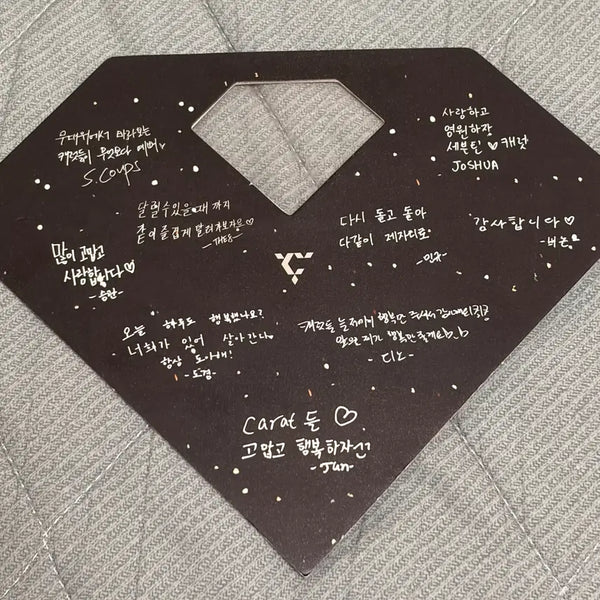 무대위에서 바라보는
캐럿들이 무엇보다 예뻐
S.COUPS
사랑하고
영원하장
세븐틴 ♡ 캐럿
JOSHUA
달릴수있을 때 까지
같이 즐겁게 달려가보자은♡
-THE8-
다시 돌고 돌아
다같이 제자리로
-민규-
감사합니다♡
-버논-
많이 고맙고
사랑합니다♡
-승관-
오늘 하루도 행복했나요?
너희가 있어 살아간다
항상 고마워!
-도겸-
캐럿들
행복만
-디노-
carat 들 ♡
고맙고 행복하자
-Jun-